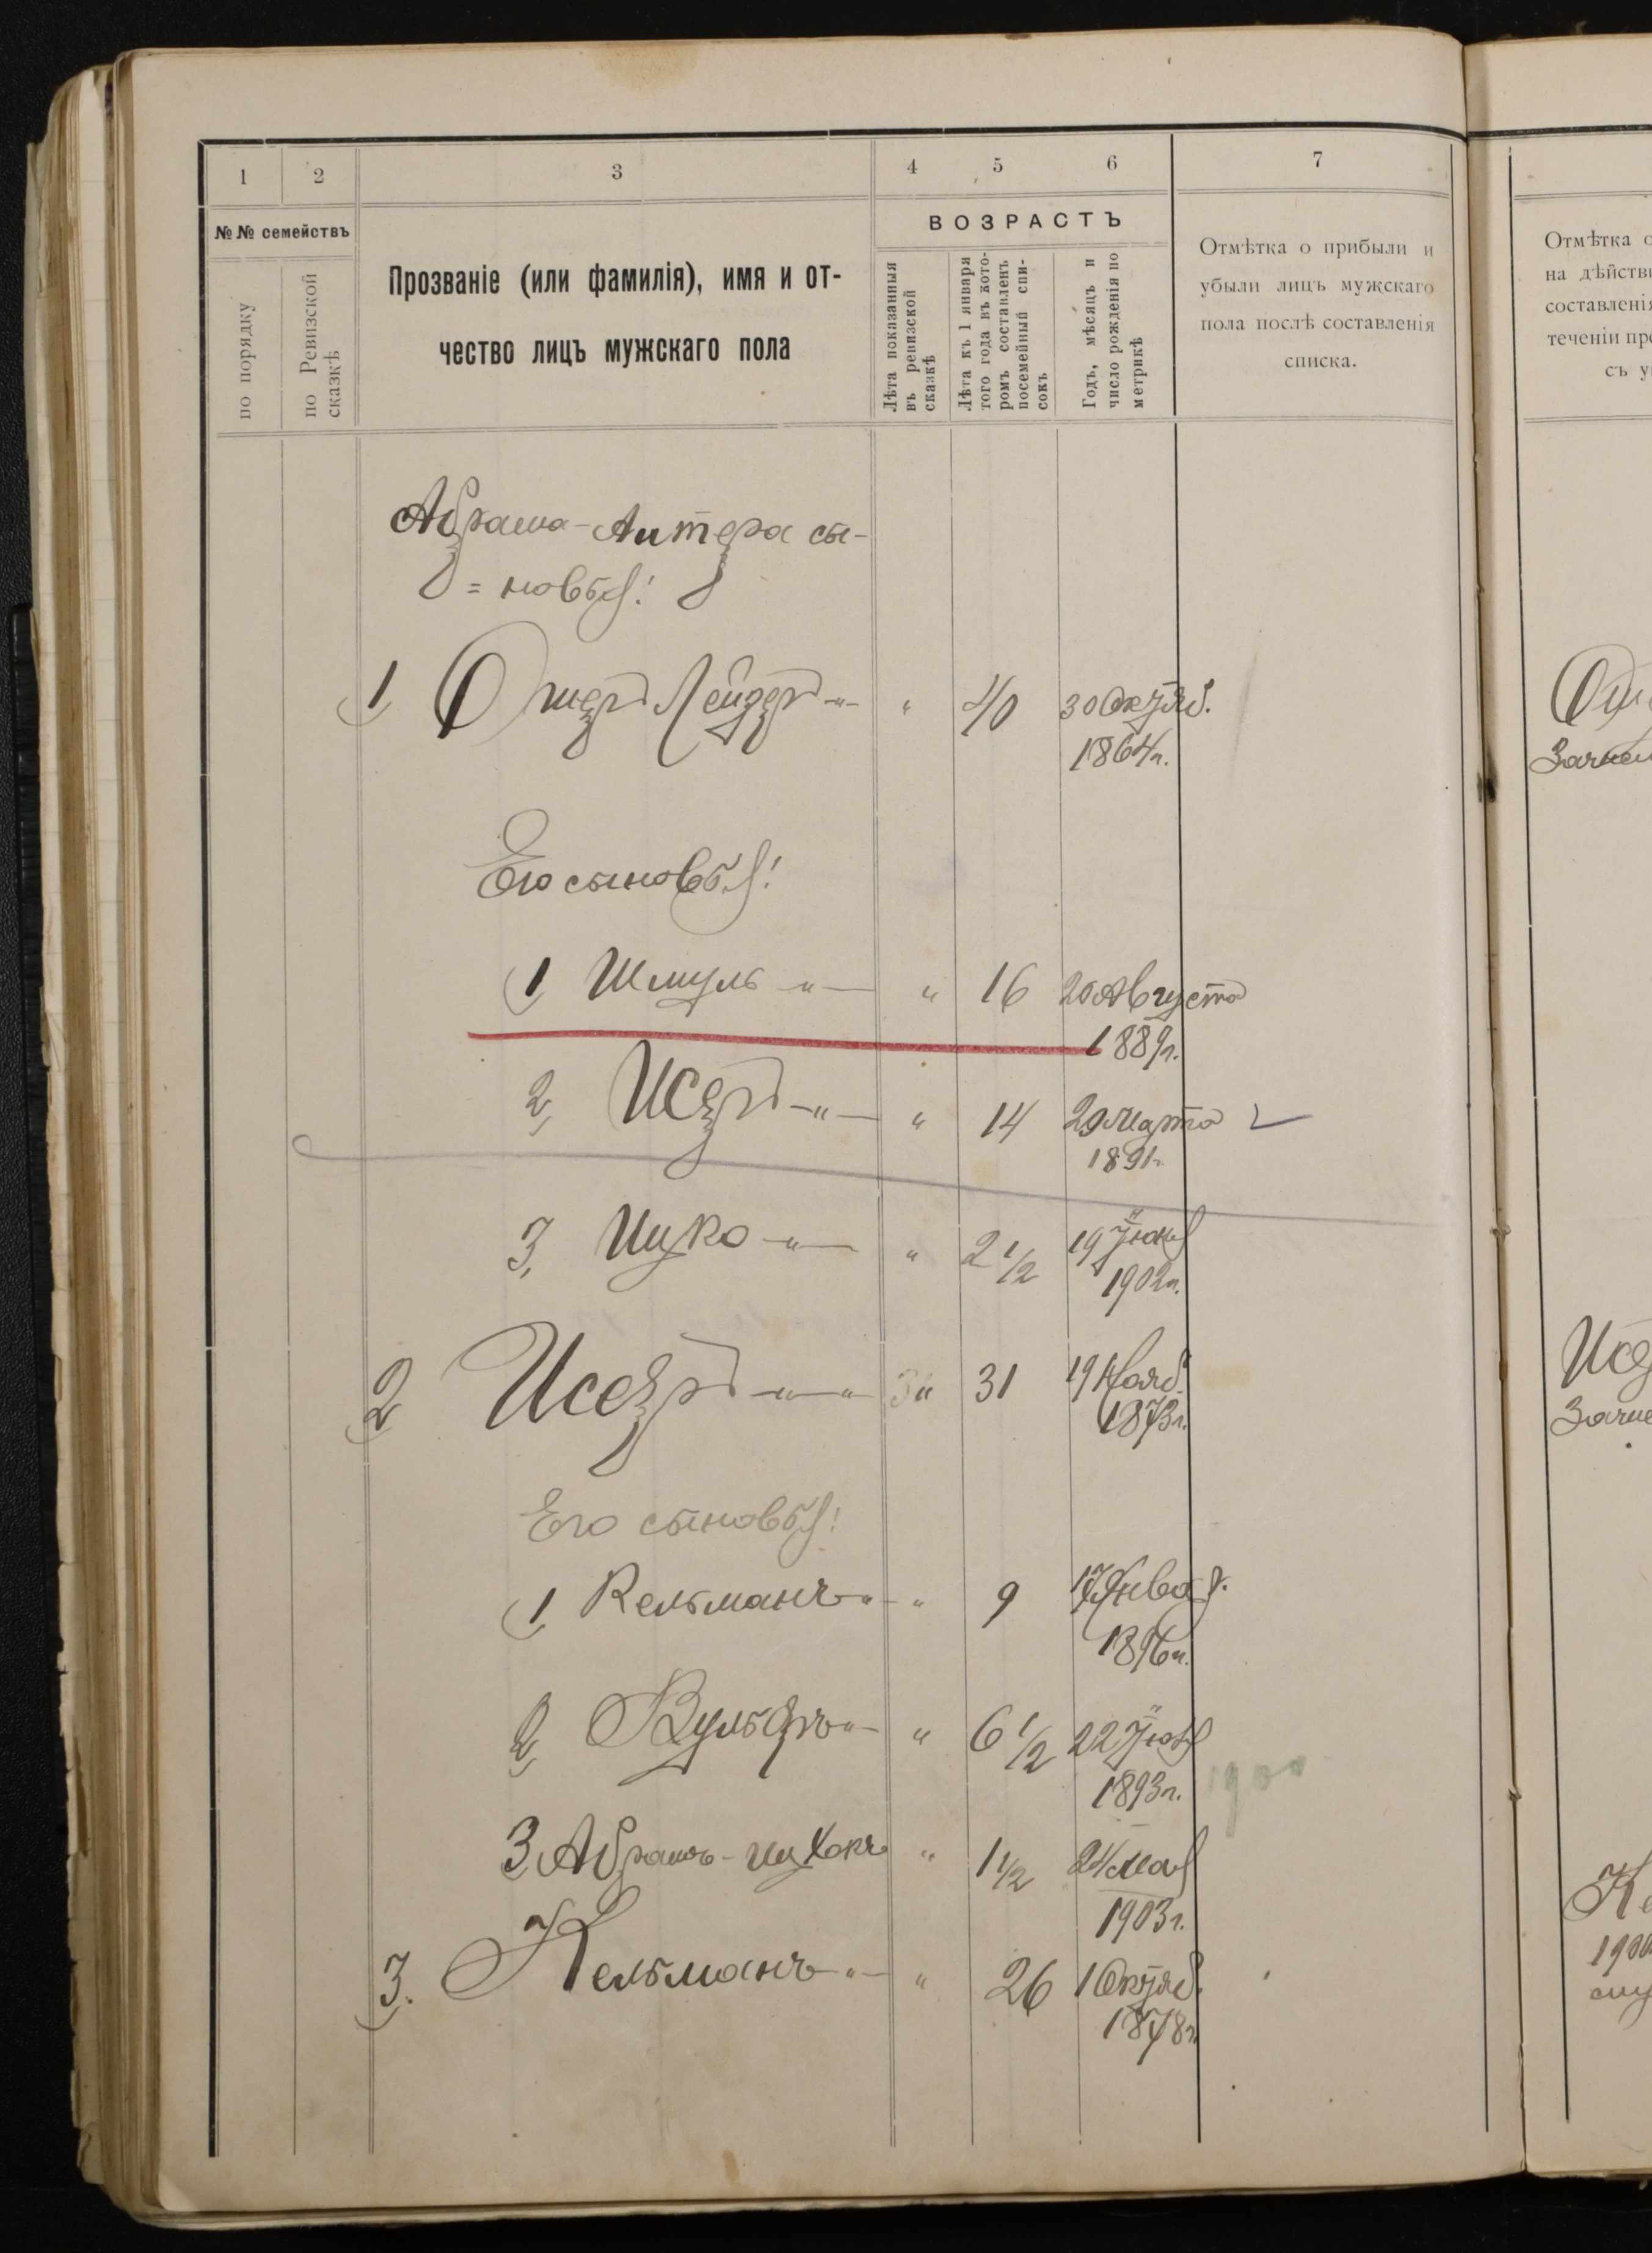 1 2 3 4 5 6 7
№№ семействъ
по порядку
по Ревизской
сказкѣ
Прозваніе (или фамилія), имя и от-
чество лицъ мужскаго пола
ВОЗРАСТЪ
Лѣта показанныя
въ ревизской
сказкѣ
Лѣта къ 1 января
того года въ кото-
ромъ составленъ
посемейный спи-
сокъ
Годъ, мѣсяцъ и
число рожденія по
метрикѣ
Отмѣтка о прибыли и
убыли лицъ мужскаго
пола послѣ составленія
списка.
Абрама-Антера сы-
=новья!
1 Ошеръ Лейдеръ -"- " 40 30 Октяб.
1864 г.
Его сыновья!
1 Шмуль -"- " 16 20 Августа
1889 г.
2, Исеръ -"- " 14 29 Марта
1891 г.
3, Ицко -"- " 2 1/2 19 Іюня
1902 г.
2 Исеръ -"-" " 31 19 Нояб.
1873 г.
Его сыновья!
1 Кельманъ -"- " 9 17 Январ.
1896 г.
2, Вульфъ -"- " 6 1/2 22
1893 г. 1900
3, Абрамъ-Ицхокъ " 1 1/2 24 Мая
1903 г.
3. Кельманъ -"- " 26 1 Октяб.
1878 г.
Отмѣтка о
на дѣйстви
составленія
теченіи пре
съ у
Ош
Зачис
Исе
Зачис
Ке
1900
слу